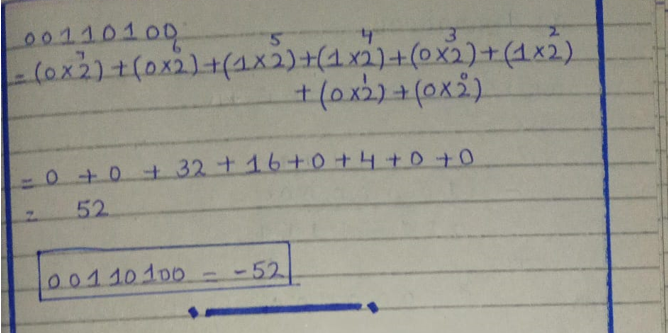 00110100
= (0×2⁷) + (0×2⁶) + (1×2⁵) + (1×2⁴) + (0×2³) + (1×2²)
+ (0×2¹) + (0×2⁰)
= 0 + 0 + 32 + 16 + 0 + 4 + 0 + 0
= 52
00110100 = -52